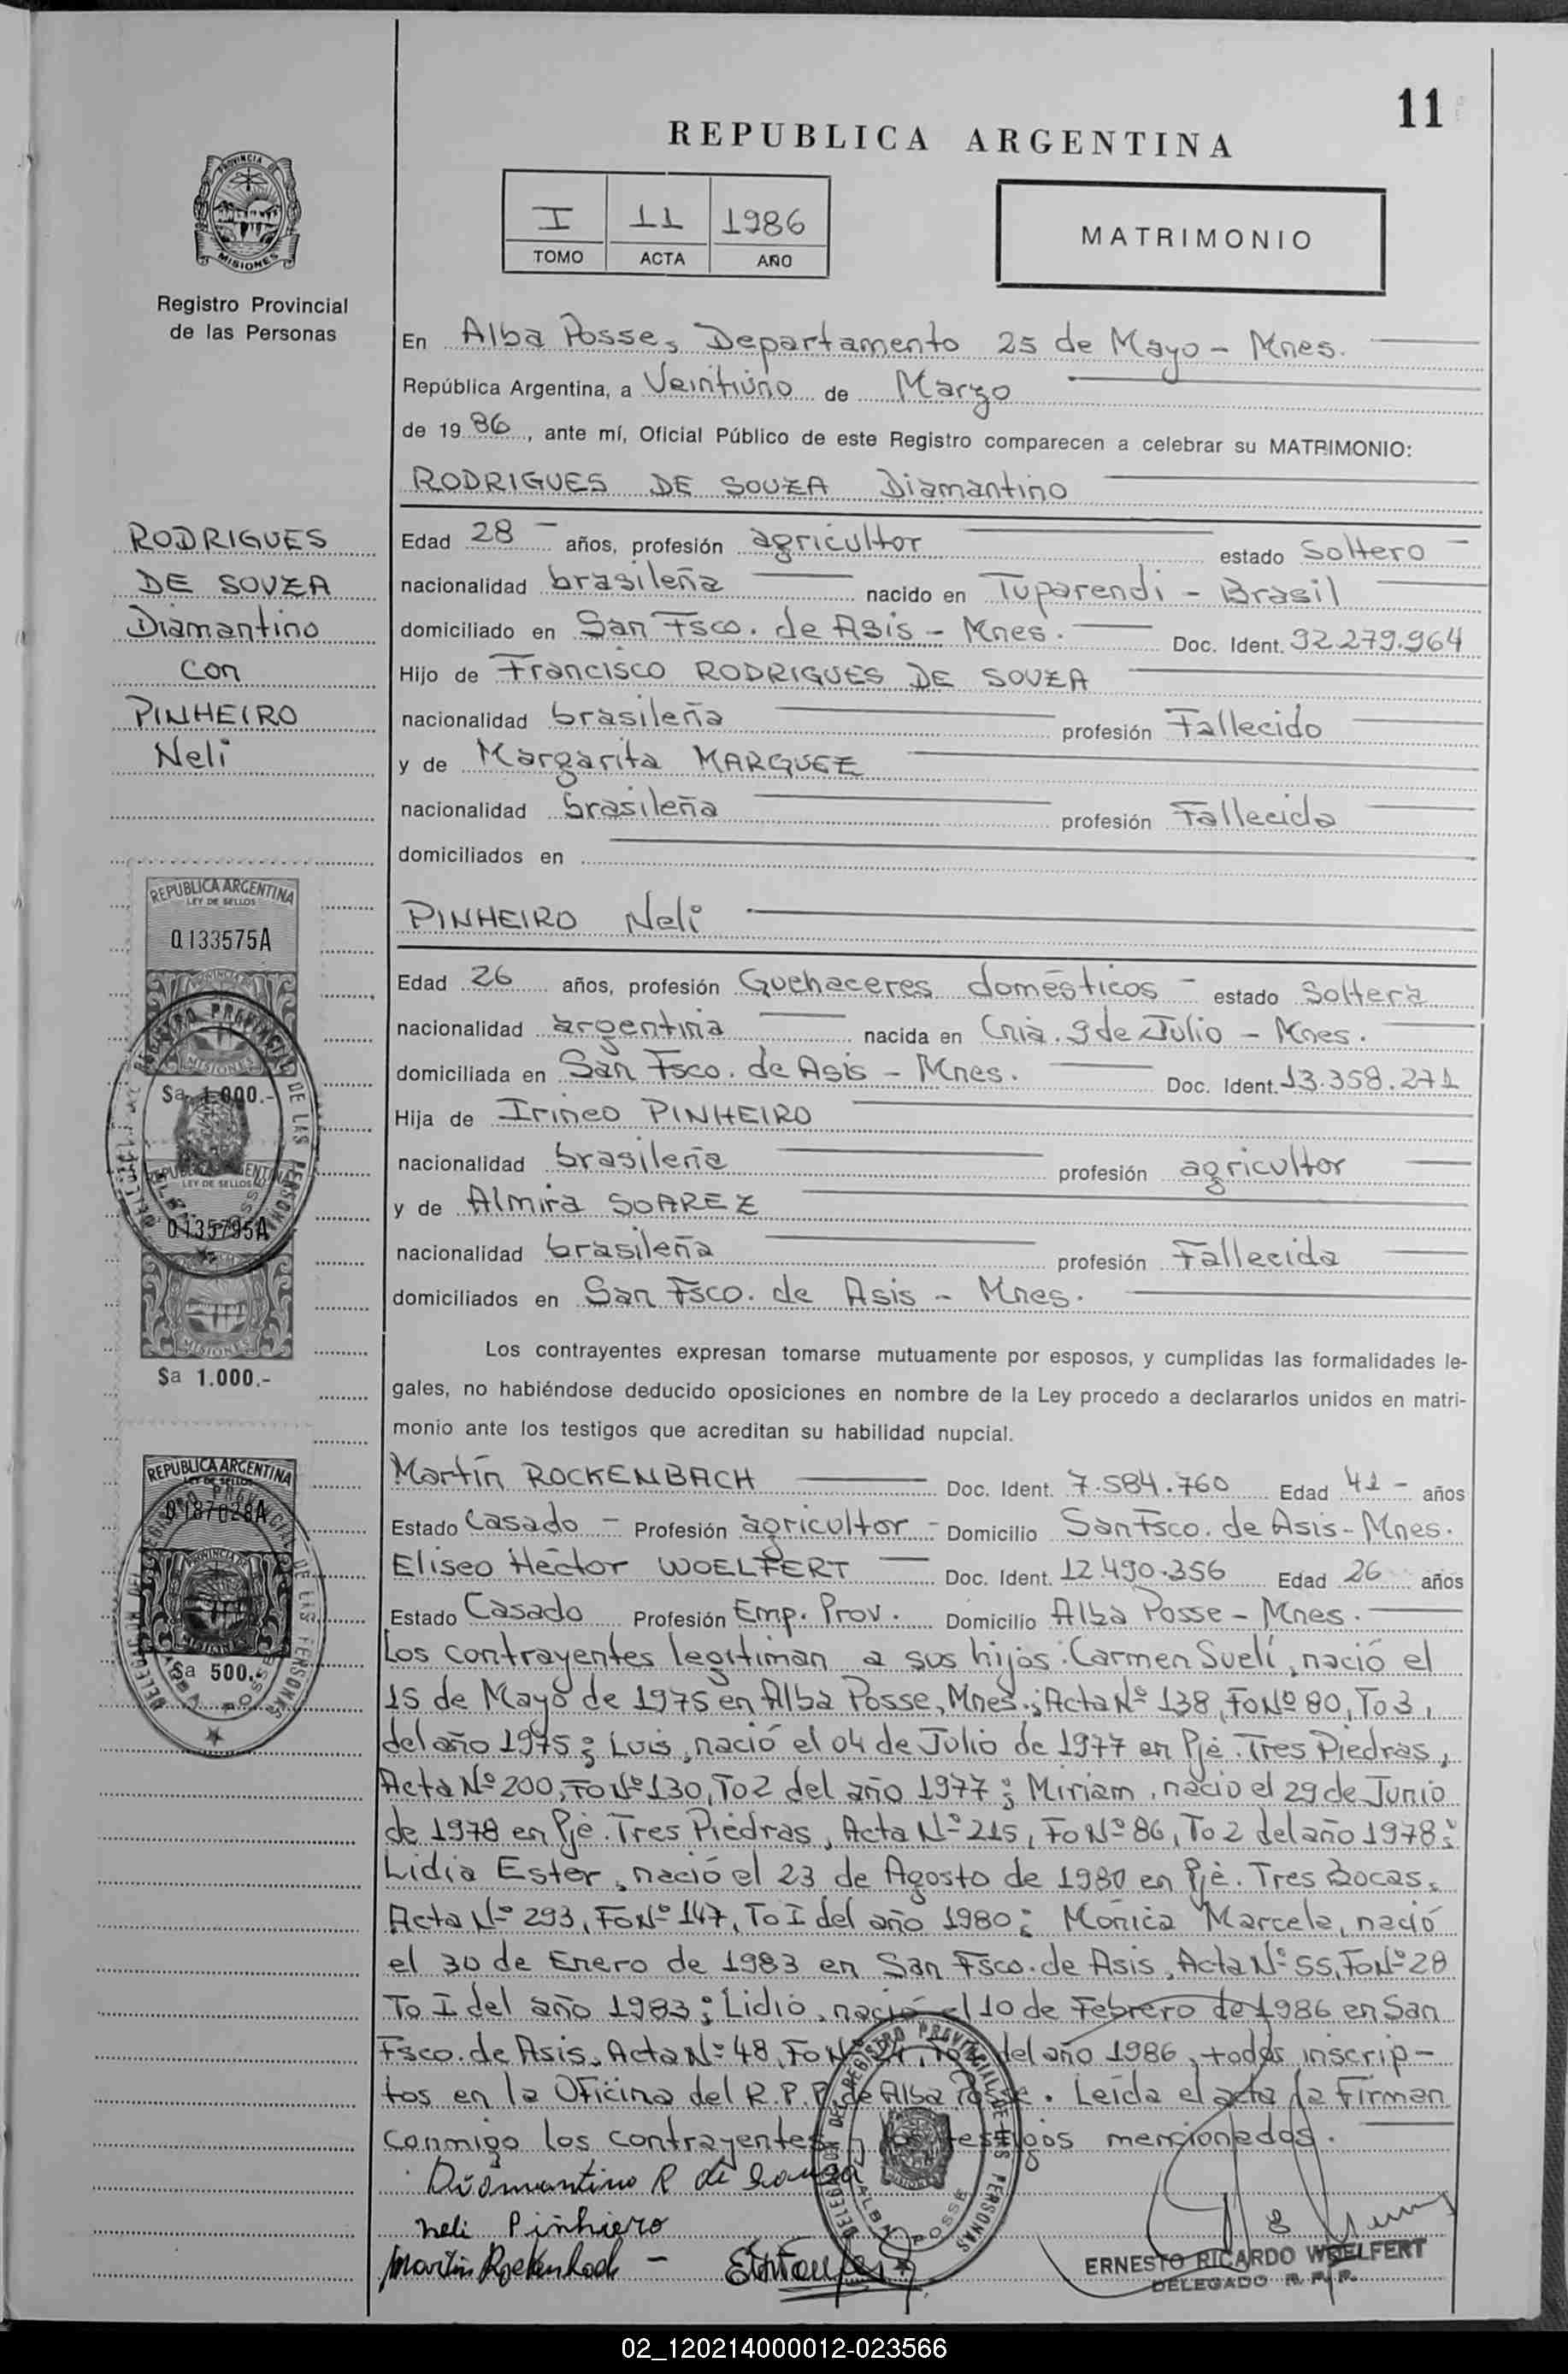 11
REPUBLICA ARGENTINA
I 11 1986
TOMO ACTA AÑO
MATRIMONIO
PROVINCIA DE
MISIONES
Registro Provincial
de las Personas
En Alba Posse, Departamento 25 de Mayo - Mnes.
República Argentina, a Veintiúno de Marzo
de 19 86, ante mí, Oficial Público de este Registro comparecen a celebrar su MATRIMONIO:
RODRIGUES DE SOUZA Diamantino
RODRIGUES
DE SOUZA
Diamantino
con
PINHEIRO
Neli
Edad 28 - años, profesión agricultor estado Soltero -
nacionalidad brasileña nacido en Tuparendi - Brasil
domiciliado en San Fsco. de Asis - Mnes. Doc. Ident. 92.279.964
Hijo de Francisco RODRIGUES DE SOUZA
nacionalidad brasileña profesión Fallecido
y de Margarita MARQUEZ
nacionalidad brasileña profesión Fallecida
domiciliados en
PINHEIRO Neli
Edad 26 años, profesión Quehaceres domésticos - estado Soltera
nacionalidad argentina nacida en Cnia. 9 de Julio - Mnes.
domiciliada en San Fsco. de Asis - Mnes. Doc. Ident. 13.358.271
Hija de Irineo PINHEIRO
nacionalidad brasileña profesión agricultor
y de Almira SOAREZ
nacionalidad brasileña profesión Fallecida
domiciliados en San Fsco. de Asis - Mnes.
REPUBLICA ARGENTINA
LEY DE SELLOS
0.133575A
MISIONES
$a 1.000.-
LEY DE SELLOS
0.135795A
MISIONES
$a 1.000.-
REPUBLICA ARGENTINA
LEY DE SELLOS
0.187028A
$a 500.-
Los contrayentes expresan tomarse mutuamente por esposos, y cumplidas las formalidades le-
gales, no habiéndose deducido oposiciones en nombre de la Ley procedo a declararlos unidos en matri-
monio ante los testigos que acreditan su habilidad nupcial.
Martín ROCKENBACH Doc. Ident. 7.584.760 Edad 41 - años
Estado Casado - Profesión agricultor - Domicilio San Fsco. de Asis - Mnes.
Eliseo Héctor WOELFERT Doc. Ident. 12.490.356 Edad 26 años
Estado Casado Profesión Emp. Prov. Domicilio Alba Posse - Mnes.
Los contrayentes legitiman a sus hijos: Carmen Suelí, nació el
15 de Mayo de 1975 en Alba Posse, Mnes.; Acta Nº 138, Fo Nº 80, To 3,
del año 1975; Luis, nació el 04 de Julio de 1977 en Pje. Tres Piedras,
Acta Nº 200, Fo Nº 130, To 2 del año 1977; Miriam, nació el 29 de Junio
de 1978 en Pje. Tres Piedras, Acta Nº 215, Fo Nº 86, To 2 del año 1978;
Lidia Ester, nació el 23 de Agosto de 1980 en Pje. Tres Bocas,
Acta Nº 293, Fo Nº 147, To I del año 1980; Mónica Marcela, nació
el 30 de Enero de 1983 en San Fsco. de Asis, Acta Nº 55, Fo Nº 28
To I del año 1983; Lidio, nació el 10 de Febrero de 1986 en San
Fsco. de Asis, Acta Nº 48, Fo Nº 24, To del año 1986, todos inscrip-
tos en la Oficina del R.P.P. de Alba Posse. Leída el acta la Firman
conmigo los contrayentes y los testigos mencionados.
Diamantino R de Souza
neli Pinhiero
Martin Rockenbach -
ERNESTO RICARDO WOELFERT
DELEGADO R. P. P.
DELEGACION DEL REGISTRO PROVINCIAL DE LAS PERSONAS
ALBA POSSE
02_120214000012-023566